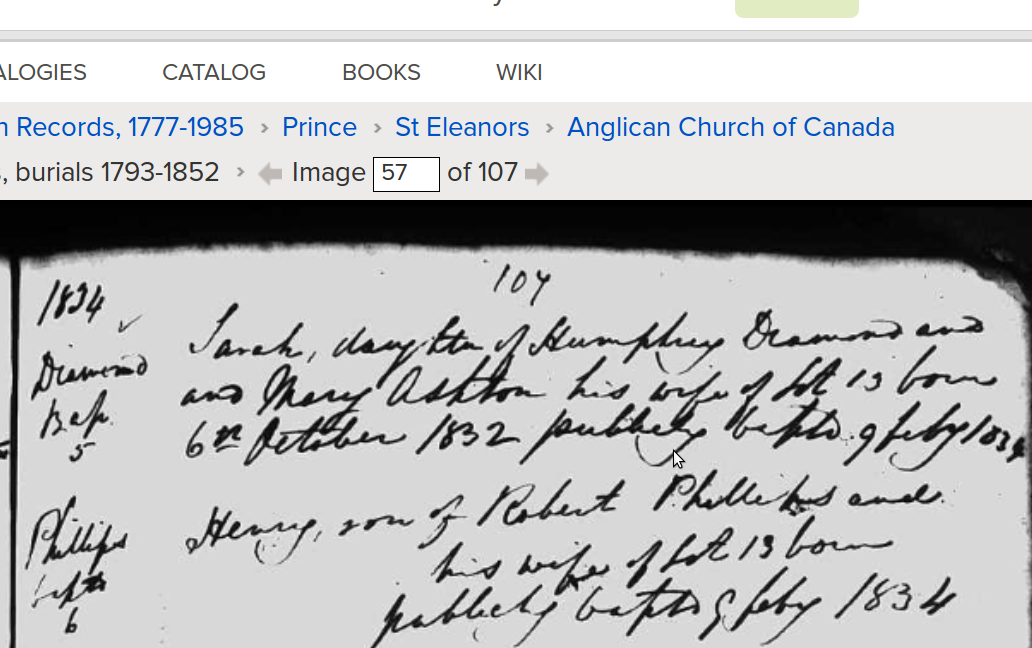 ALOGIES CATALOG BOOKS WIKI
n Records, 1777-1985 › Prince › St Eleanors › Anglican Church of Canada
, burials 1793-1852 › Image 57 of 107
107
1834
Diamond
Bap.
5
Sarah, daughter of Humphrey Diamond and
and Mary Ashton his wife of lot 13 born
6th October 1832 publicly baptd. 9 feby 1834
Phillips
baptd
6
Henry, son of Robert Phillips and
his wife of lot 13 born
publicly baptd 9 feby 1834